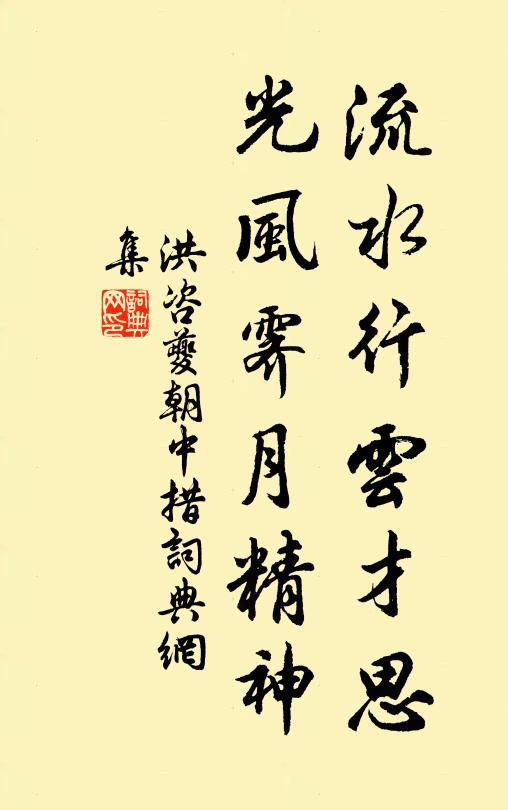 流水行雲才思
光風霽月精神
洪咨夔朝中措詞典網
集
詞典
网印